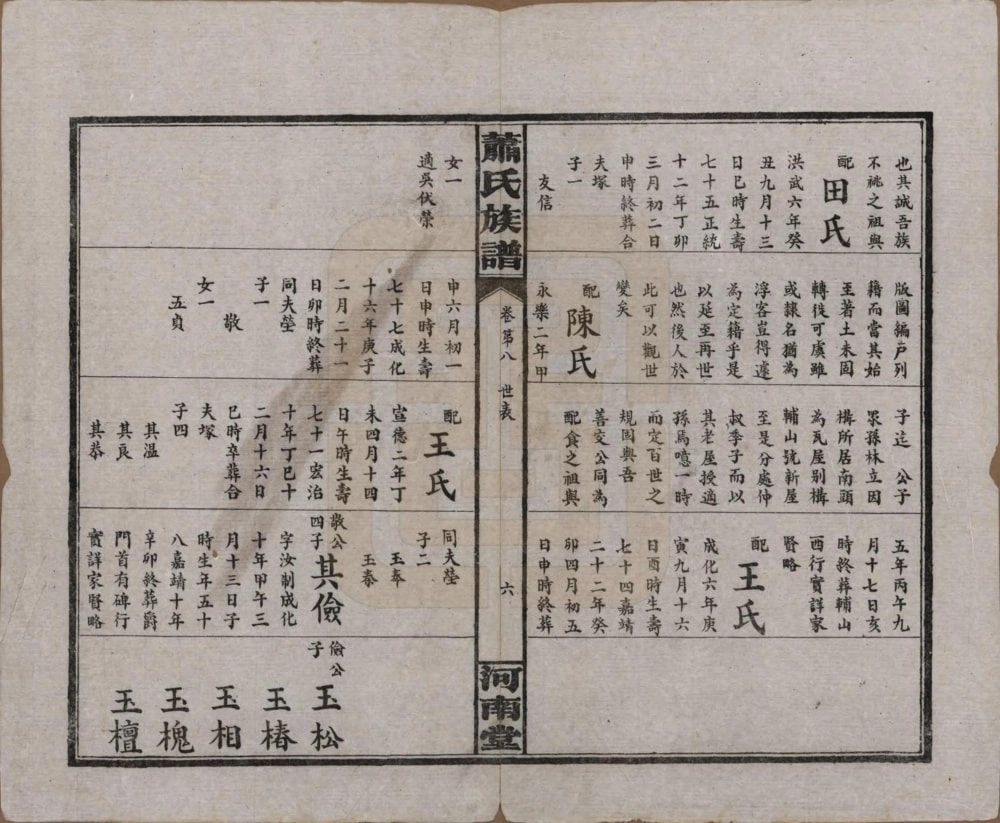 也其誠吾族
不祧之祖與
配
田氏
洪武六年癸
丑九月十三
日巳時生壽
七十五正統
十二年丁卯
三月初二日
申時終葬合
夫塚
子一
友信
版圖編戶列
籍而當其始
至著土未固
轉徙可虞雖
或隸名猶為
浮客豈得遽
為定籍乎是
以延至再世
也然後人於
此可以觀世
變矣
配
陳氏
永樂二年甲
子迄 公子
眾孫林立因
構所居南頭
為瓦屋別構
輔山號新屋
至是分處仲
叔季子而以
其老屋授適
孫焉噫一時
而定百世之
規固與吾
善交公同為
配食之祖與
五年丙午九
月十七日亥
時終葬輔山
酉行實詳家
賢略
配
王氏
成化六年庚
寅九月十六
日酉時生壽
七十四嘉靖
二十二年癸
卯四月初五
日申時終葬
蕭氏族譜
卷第八 世表
六
河南堂
女一
適吳伏榮
申六月初一
日申時生壽
七十七成化
十六年庚子
二月二十一
日卯時終葬
同夫塋
子一
敬
女一
五貞
配
王氏
宣德二年丁
未四月十四
日午時生壽
七十一宏治
十年丁巳十
二月十六日
巳時卒葬合
夫塚
子四
其溫
其良
其恭
同夫塋
子二
玉奉
玉泰
敬公
四子
其儉
字汝制成化
十年甲午三
月十三日子
時生年五十
八嘉靖十年
辛卯終葬爵
門首有碑行
實詳家賢略
儉公
子
玉松
玉椿
玉相
玉槐
玉檀